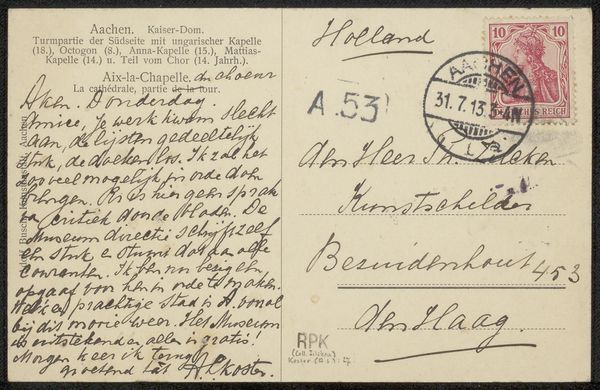 Aachen. Kaiser-Dom.
Turmpartie der Südseite mit ungarischer Kapelle
(18.), Octogon (8.), Anna-Kapelle (15.), Mattias-
Kapelle (14.) u. Teil vom Chor (14. Jahrh.).
Aix-la-Chapelle.
La cathédrale, partie de la tour.
Aken. Donderdag.
Amice, Je werk kwam slecht
aan, de lijsten gedeeltelijk
stuk, de doeken los. Ik zal het
zooveel mogelijk in orde doen
brengen. Er is hier geen sprake
van critiek door de bladen. De
Museum directie schrijft zelf
een stuk en stuurt dat aan alle
couranten. Ik ben nu bezig een
opgaaf voor hen in orde te maken.
Welk een prachtige stad is A. vooral
bij dit mooie weer. Het Museum
is uitstekend en alles is gratis!
Morgen keer ik terug
groetend tat A.L. Koster.
Holland
A.53
10 10
DEUTSCHES REICH
AACHEN
31.7.13. 3-4N.
1
den Heer Th.
Kunstschilder
Bezuidenhout 453
den Haag.
RPK